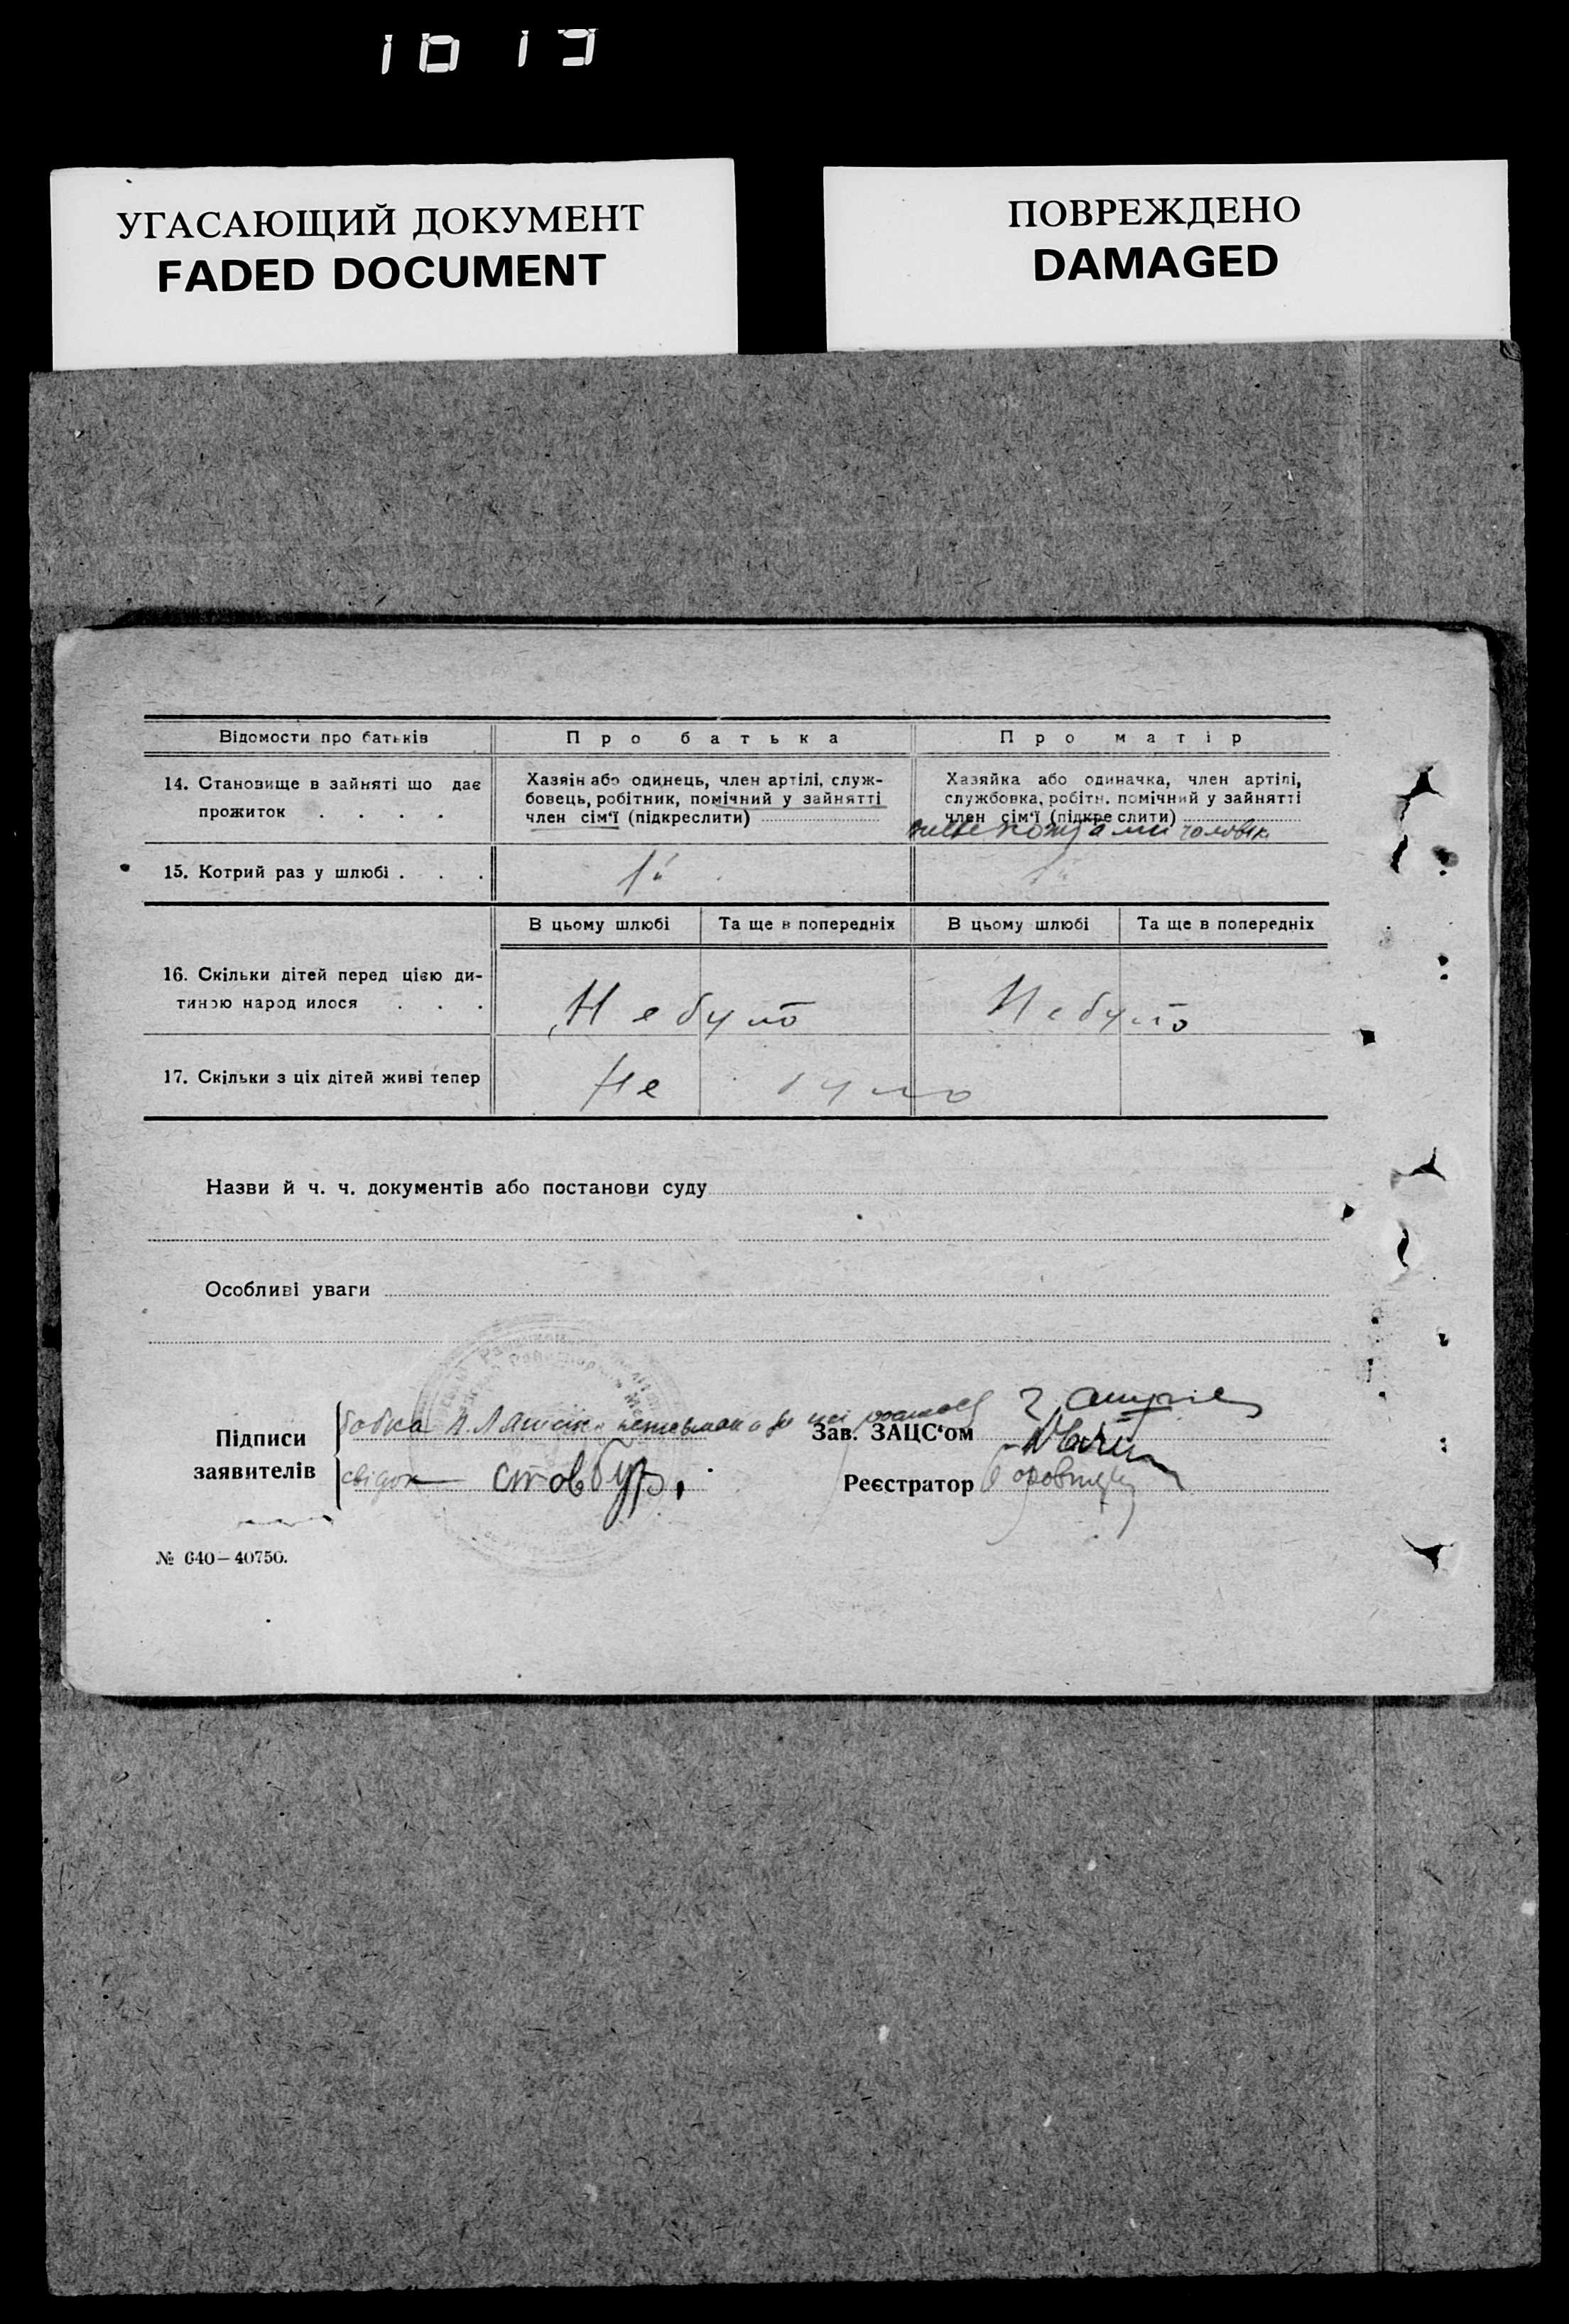 1013
УГАСАЮЩИЙ ДОКУМЕНТ
FADED DOCUMENT
ПОВРЕЖДЕНО
DAMAGED
Відомости про батьків
Про батька
Про матір
14. Становище в зайняті що дає
прожиток . . . .
Хазяін або одинець, член артілі, служ-
бовець, робітник, помічний у зайнятті
член сім'ї (підкреслити)
Хазяйка або одиначка, член артілі,
службовка, робітн. помічний у зайнятті
член сім'ї (підкреслити)
чоловіка
15. Котрий раз у шлюбі . . .
1й
1й
В цьому шлюбі
Та ще в попередніх
В цьому шлюбі
Та ще в попередніх
16. Скільки дітей перед цією ди-
тиною народилося . . .
Не було
Не було
17. Скільки з ціх дітей живі тепер
Не було
Назви й ч. ч. документів або постанови суду
Особливі уваги
Підписи
заявителів
бабка
свідок Стовбур
Зав. ЗАЦС'ом
Реєстратор
№ 640—40750.